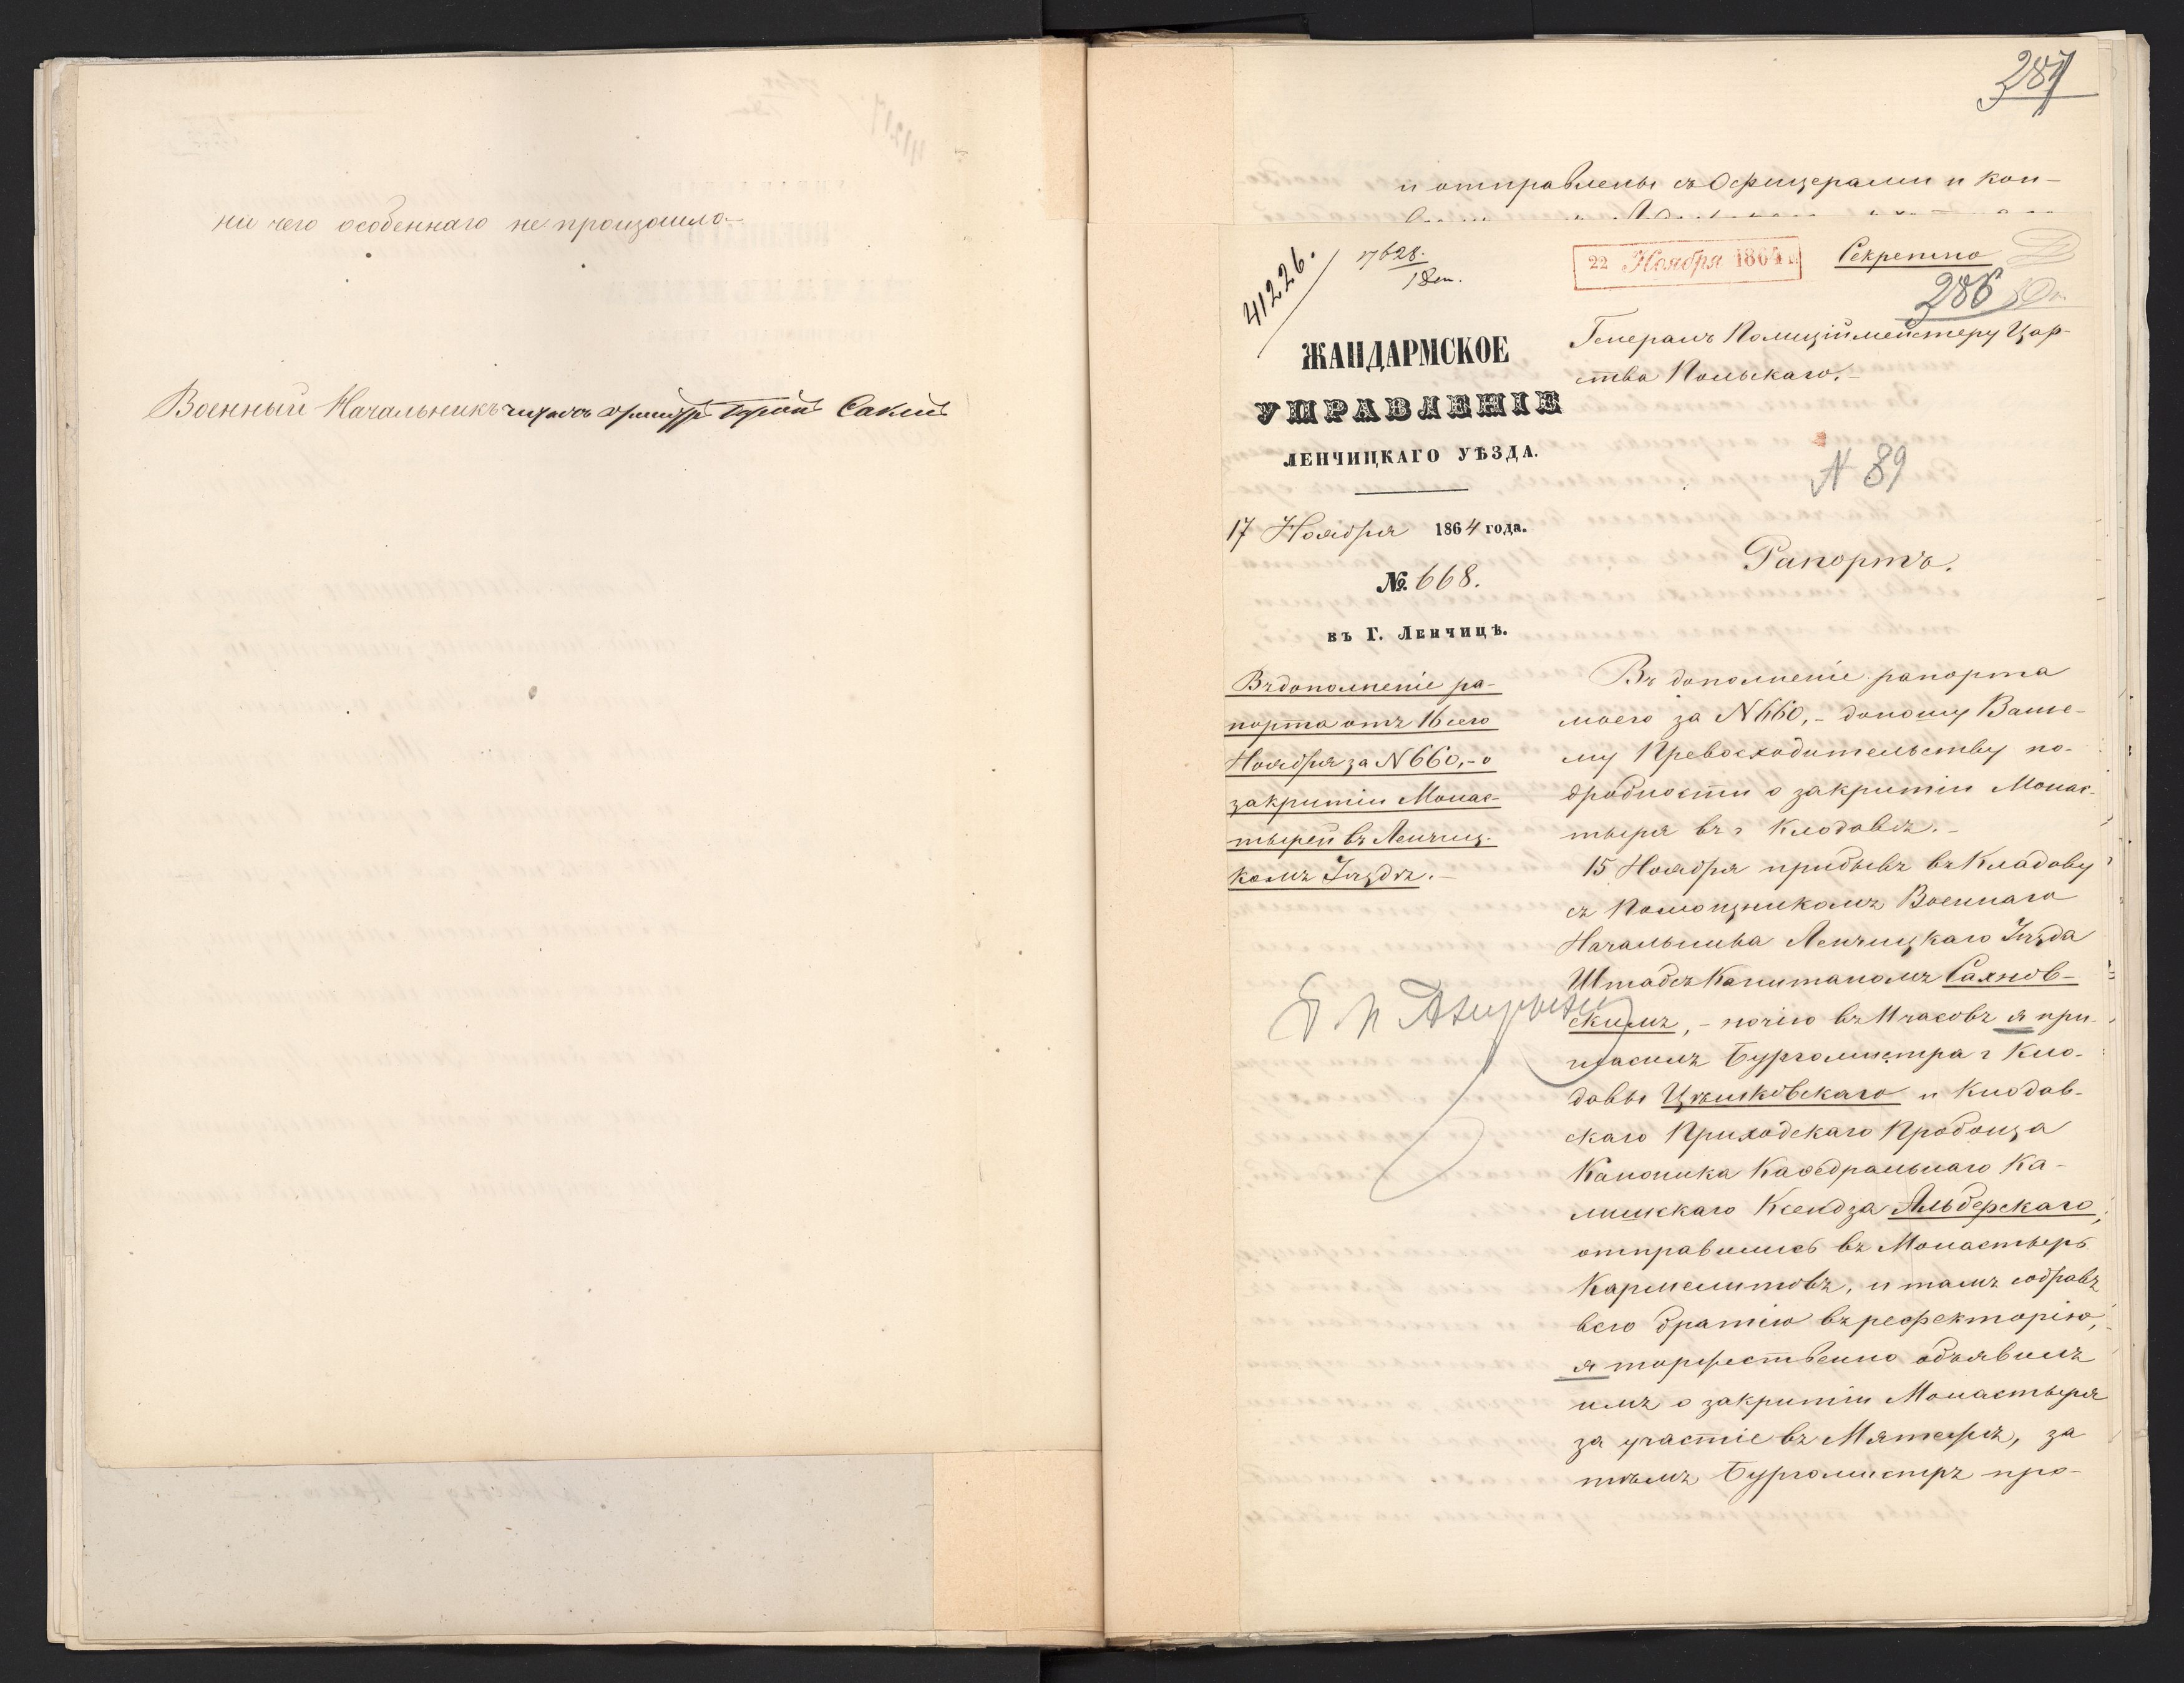 ни чего особеннаго не произошло.
Военный Начальникъ
287
и отправлены съ Офицерами и кон-
41226.
17628.
22 Ноября 1864 г.
Секретно
286
ЖАНДАРМСКОЕ
УПРАВЛЕНІЕ
ЛЕНЧИЦКАГО УѢЗДА.
17 Ноября 1864 года.
№ 668.
въ Г. Ленчицѣ.
Въ дополненіе ра-
порта отъ 16 сего
Ноября за N 660,- о
закрытіи Монас-
тырей въ Ленчиц-
комъ Уѣздѣ.-
Генералъ Полиціймейстеру Цар-
ства Польскаго.-
N 89
Рапортъ.
Въ дополненіе рапорта
моего за N 660,- доношу Ваше-
му Превосходительству по-
дробности о закрытіи Монас-
тыря въ г Клодавѣ.-
15 Ноября прибывъ въ Кладову
съ Помощникомъ Военнаго
Начальника Ленчицкаго Уѣзда
Штабсъ Капитаномъ Сахнов-
скимъ,- ночью въ 11 часовъ я при-
гласилъ Бургомистра г Кло-
давы Цѣлковскаго и Клодав-
скаго Приходскаго Пробоща
Каноника Кафедральнаго Ка-
лишскаго Ксендза Альберскаго,
отправились въ Монастырь
Кармелитовъ, и тамъ собравъ
всю братію въ рефекторію,
я торжественно объявилъ
имъ о закрытіи Монастыря
за участіе въ Мятежѣ, за
тѣмъ Бургомистръ про-